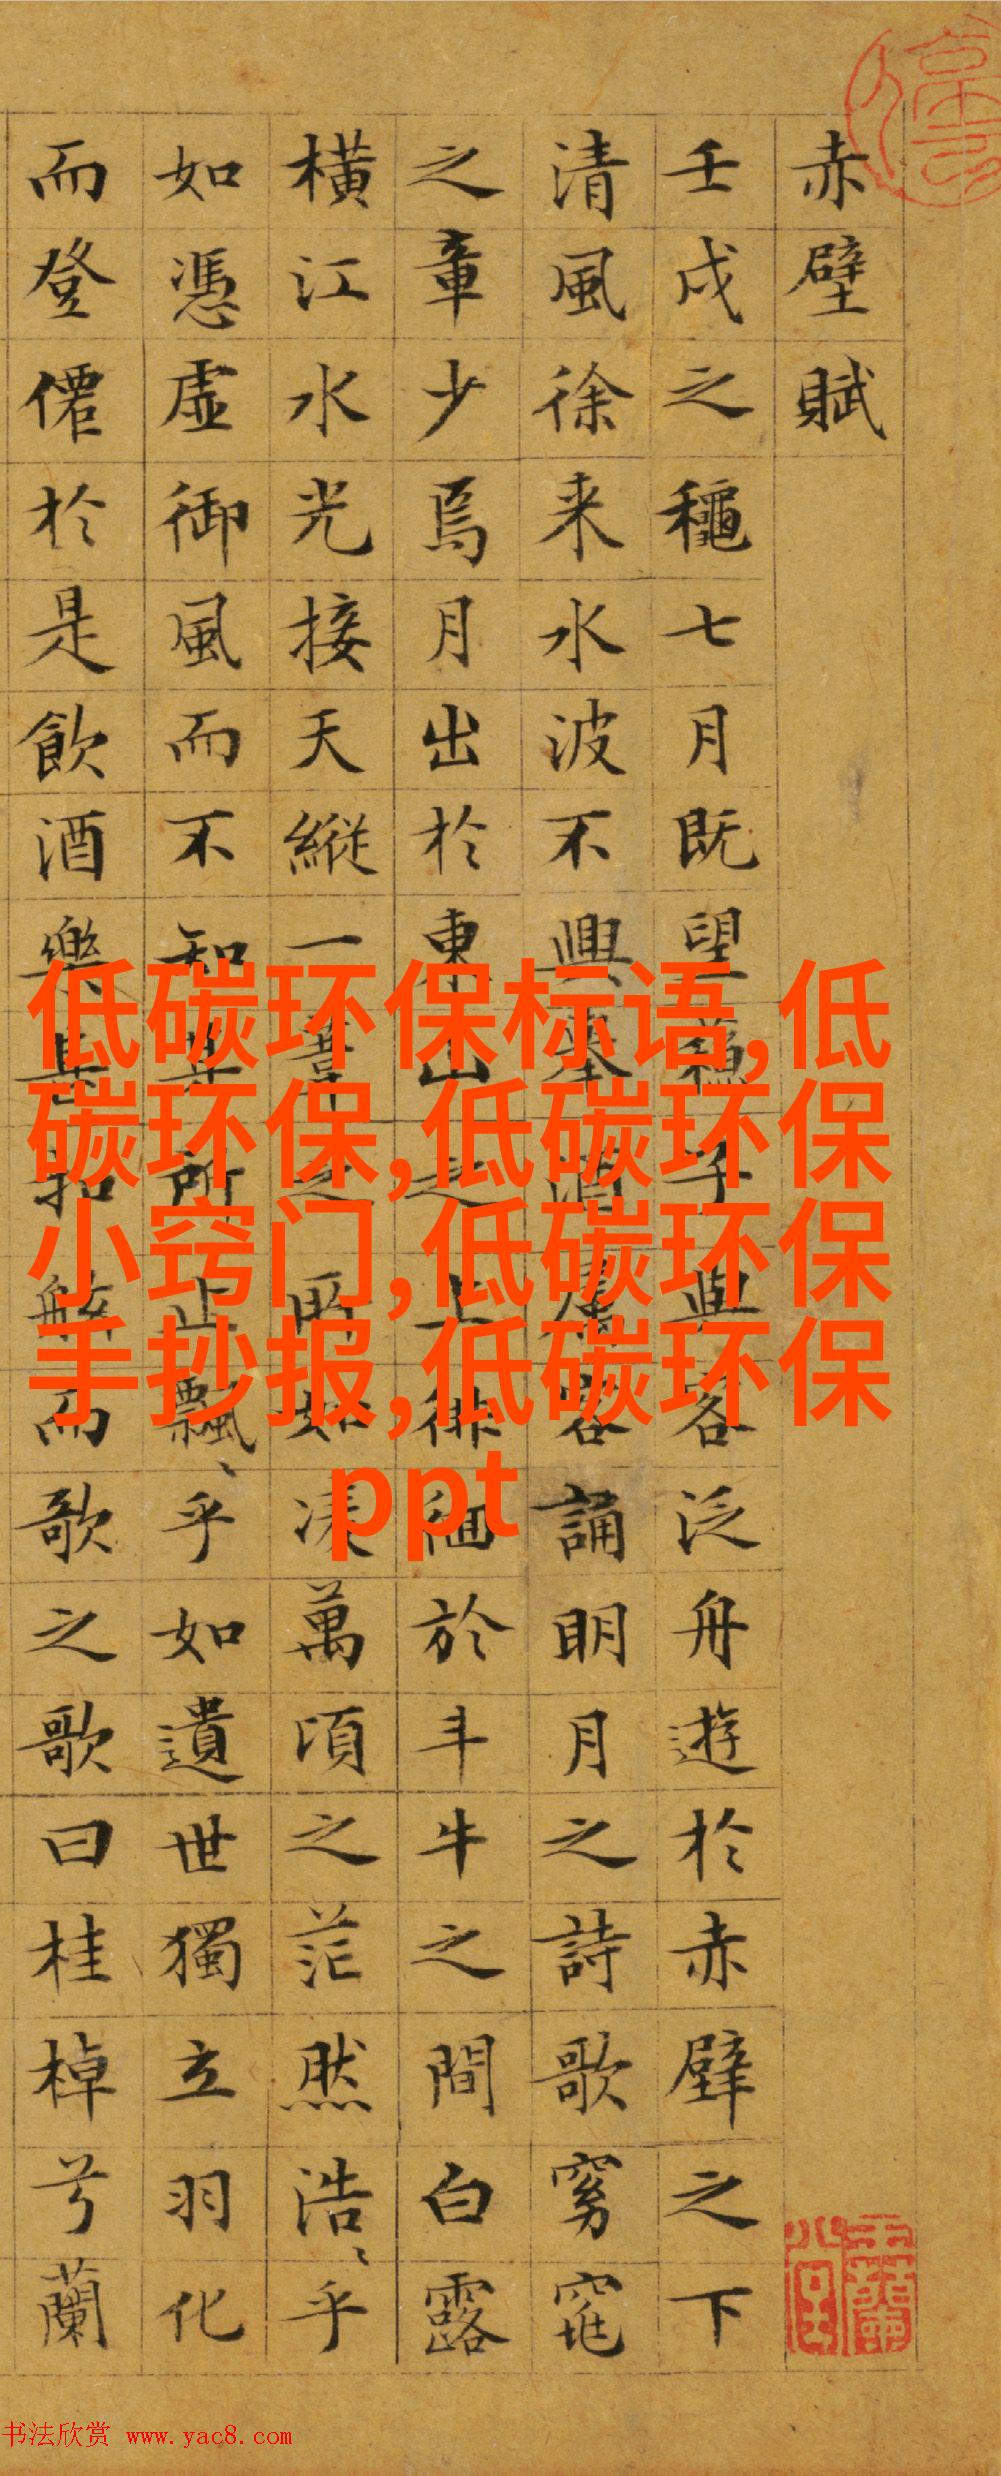 赤壁賦
壬戌之龝七月既望蘇子與客泛舟遊於赤壁之下
清風徐来水波不興舉酒屬客誦眀月之詩歌窈窕
之章少焉月出於東山之上徘徊於斗牛之間白露
橫江水光接天縱一葦之所如淩萬頃之茫然浩〻乎
如憑虛御風而不知其所止飄〻乎如遺世獨立羽化
而登僊於是飲酒樂甚扣舷而歌之歌曰桂棹兮蘭
低碳环保标语,低
碳环保,低碳环保
小窍门,低碳环保
手抄报,低碳环保
ppt
书法欣赏 www.yac8.com